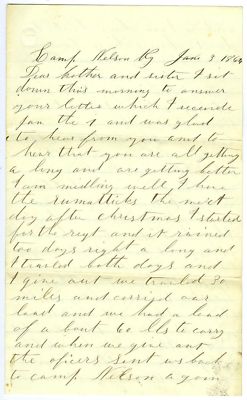 Camp Nelson Ky Jan 3 1864
Dear Mother and sister I set
down this morning to answer
your letter which I received
Jan the 1 and was glad
to hear from you and to
hear that you are all getting
a long and are getting better
I am midling well I have
the rumatticks the next
day after christmas I started
for the regt and it rained
too days right a long and
I travled both days and
I give out we travled 30
miles and carryed our
load and we had a load
of a bout 60 lbs to carry
and when we give out
the oficers sent us back
to camp Nelson a gain